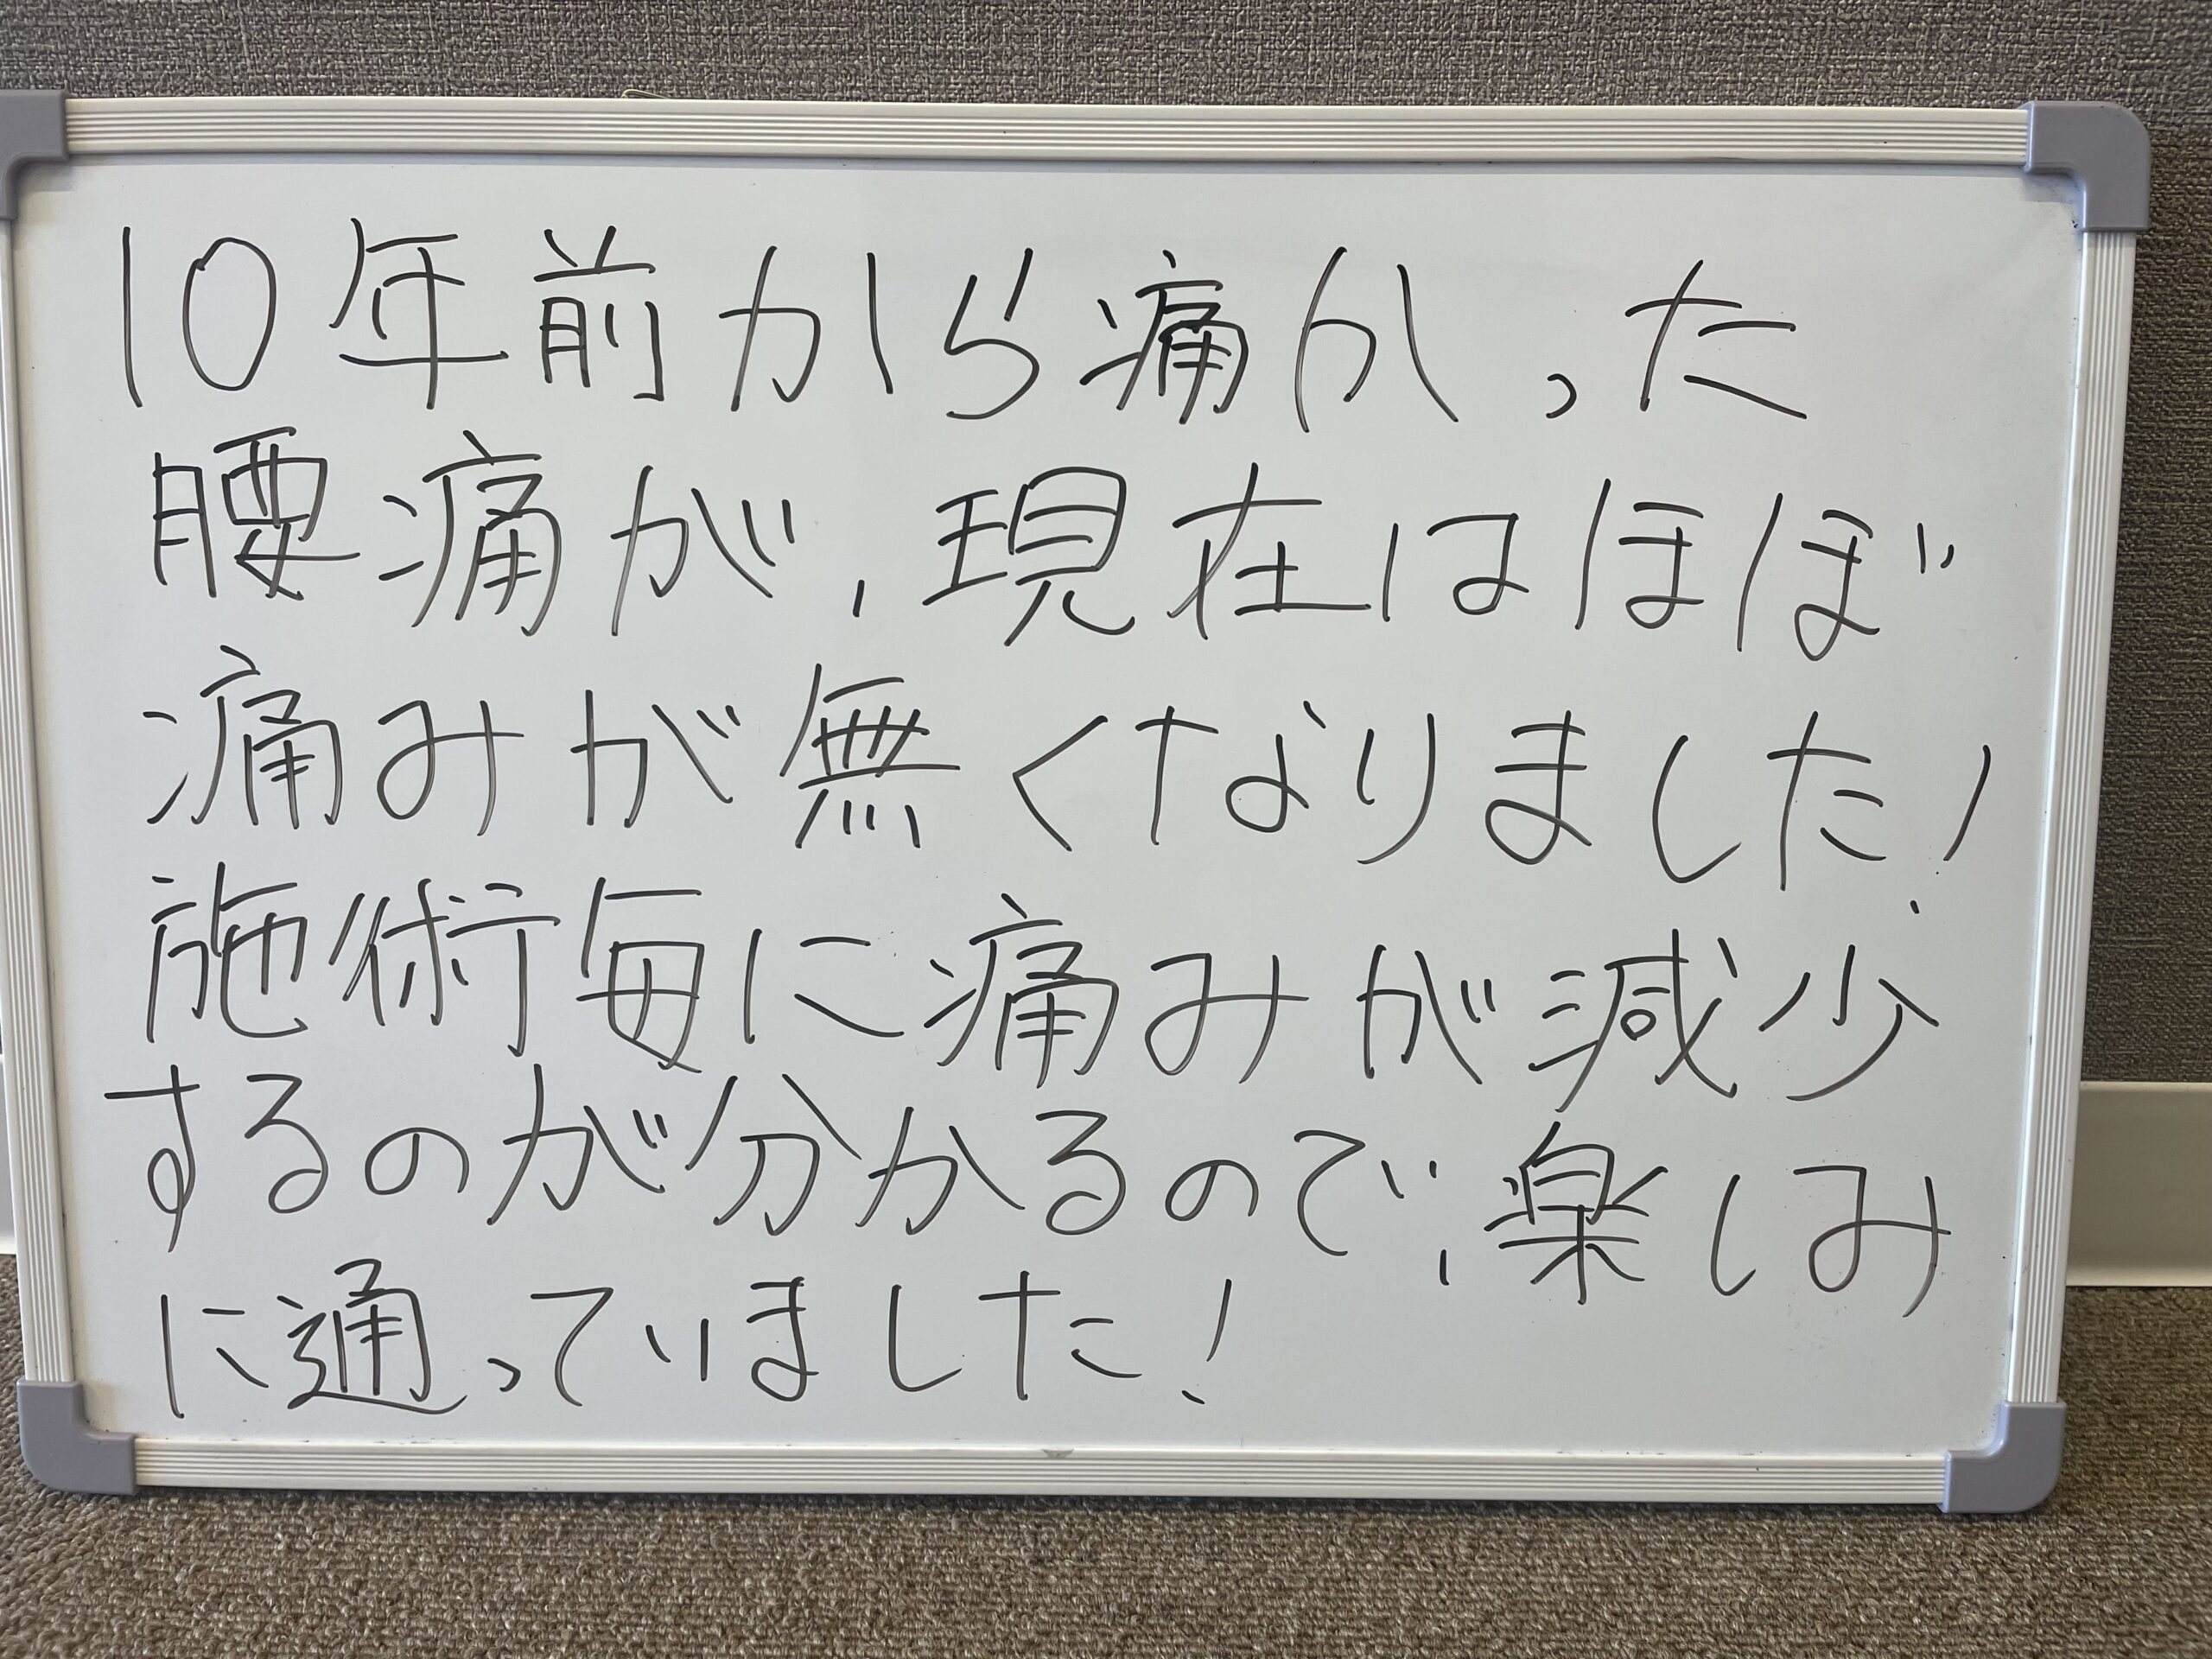 10年前から痛かった
腰痛が、現在はほぼ
痛みが無くなりました!
施術毎に痛みが減少
するのが分かるので、楽しみ
に通っていました!